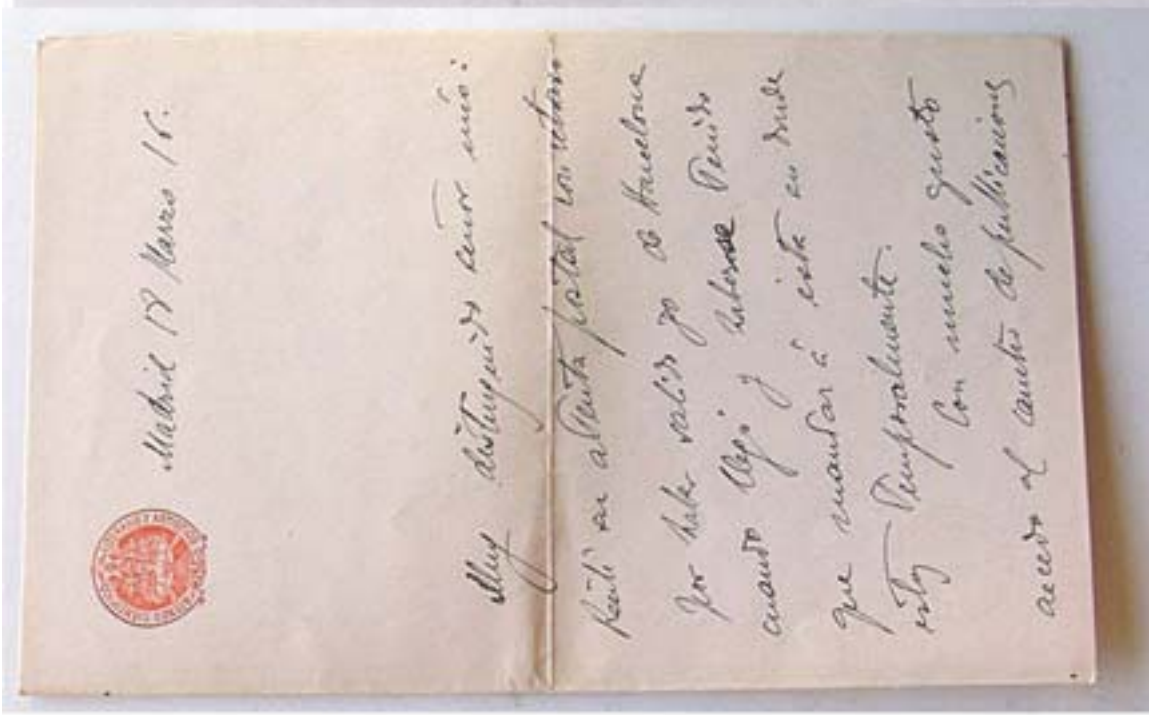 Madrid 18 Marzo 15.
Muy distinguido señor mío:
Recibí su atenta postal con retraso
por haber salido yo de Barcelona
cuando llegó y haberse tenido
que mandar á ésta en donde
estoy temporalmente.
Con mucho gusto
accedo al cambio de publicaciones